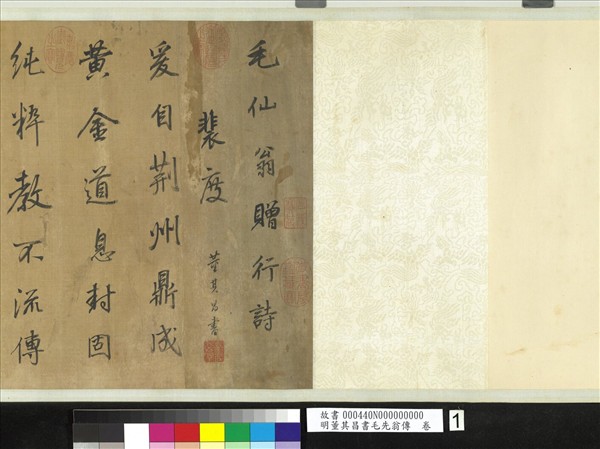 毛仙翁贈行詩
裴度
董其昌書
爰自荆州鼎成
黄金道息封固
純粹教不流傳
故書 000440N000000000
明董其昌書毛先翁傳 卷
1